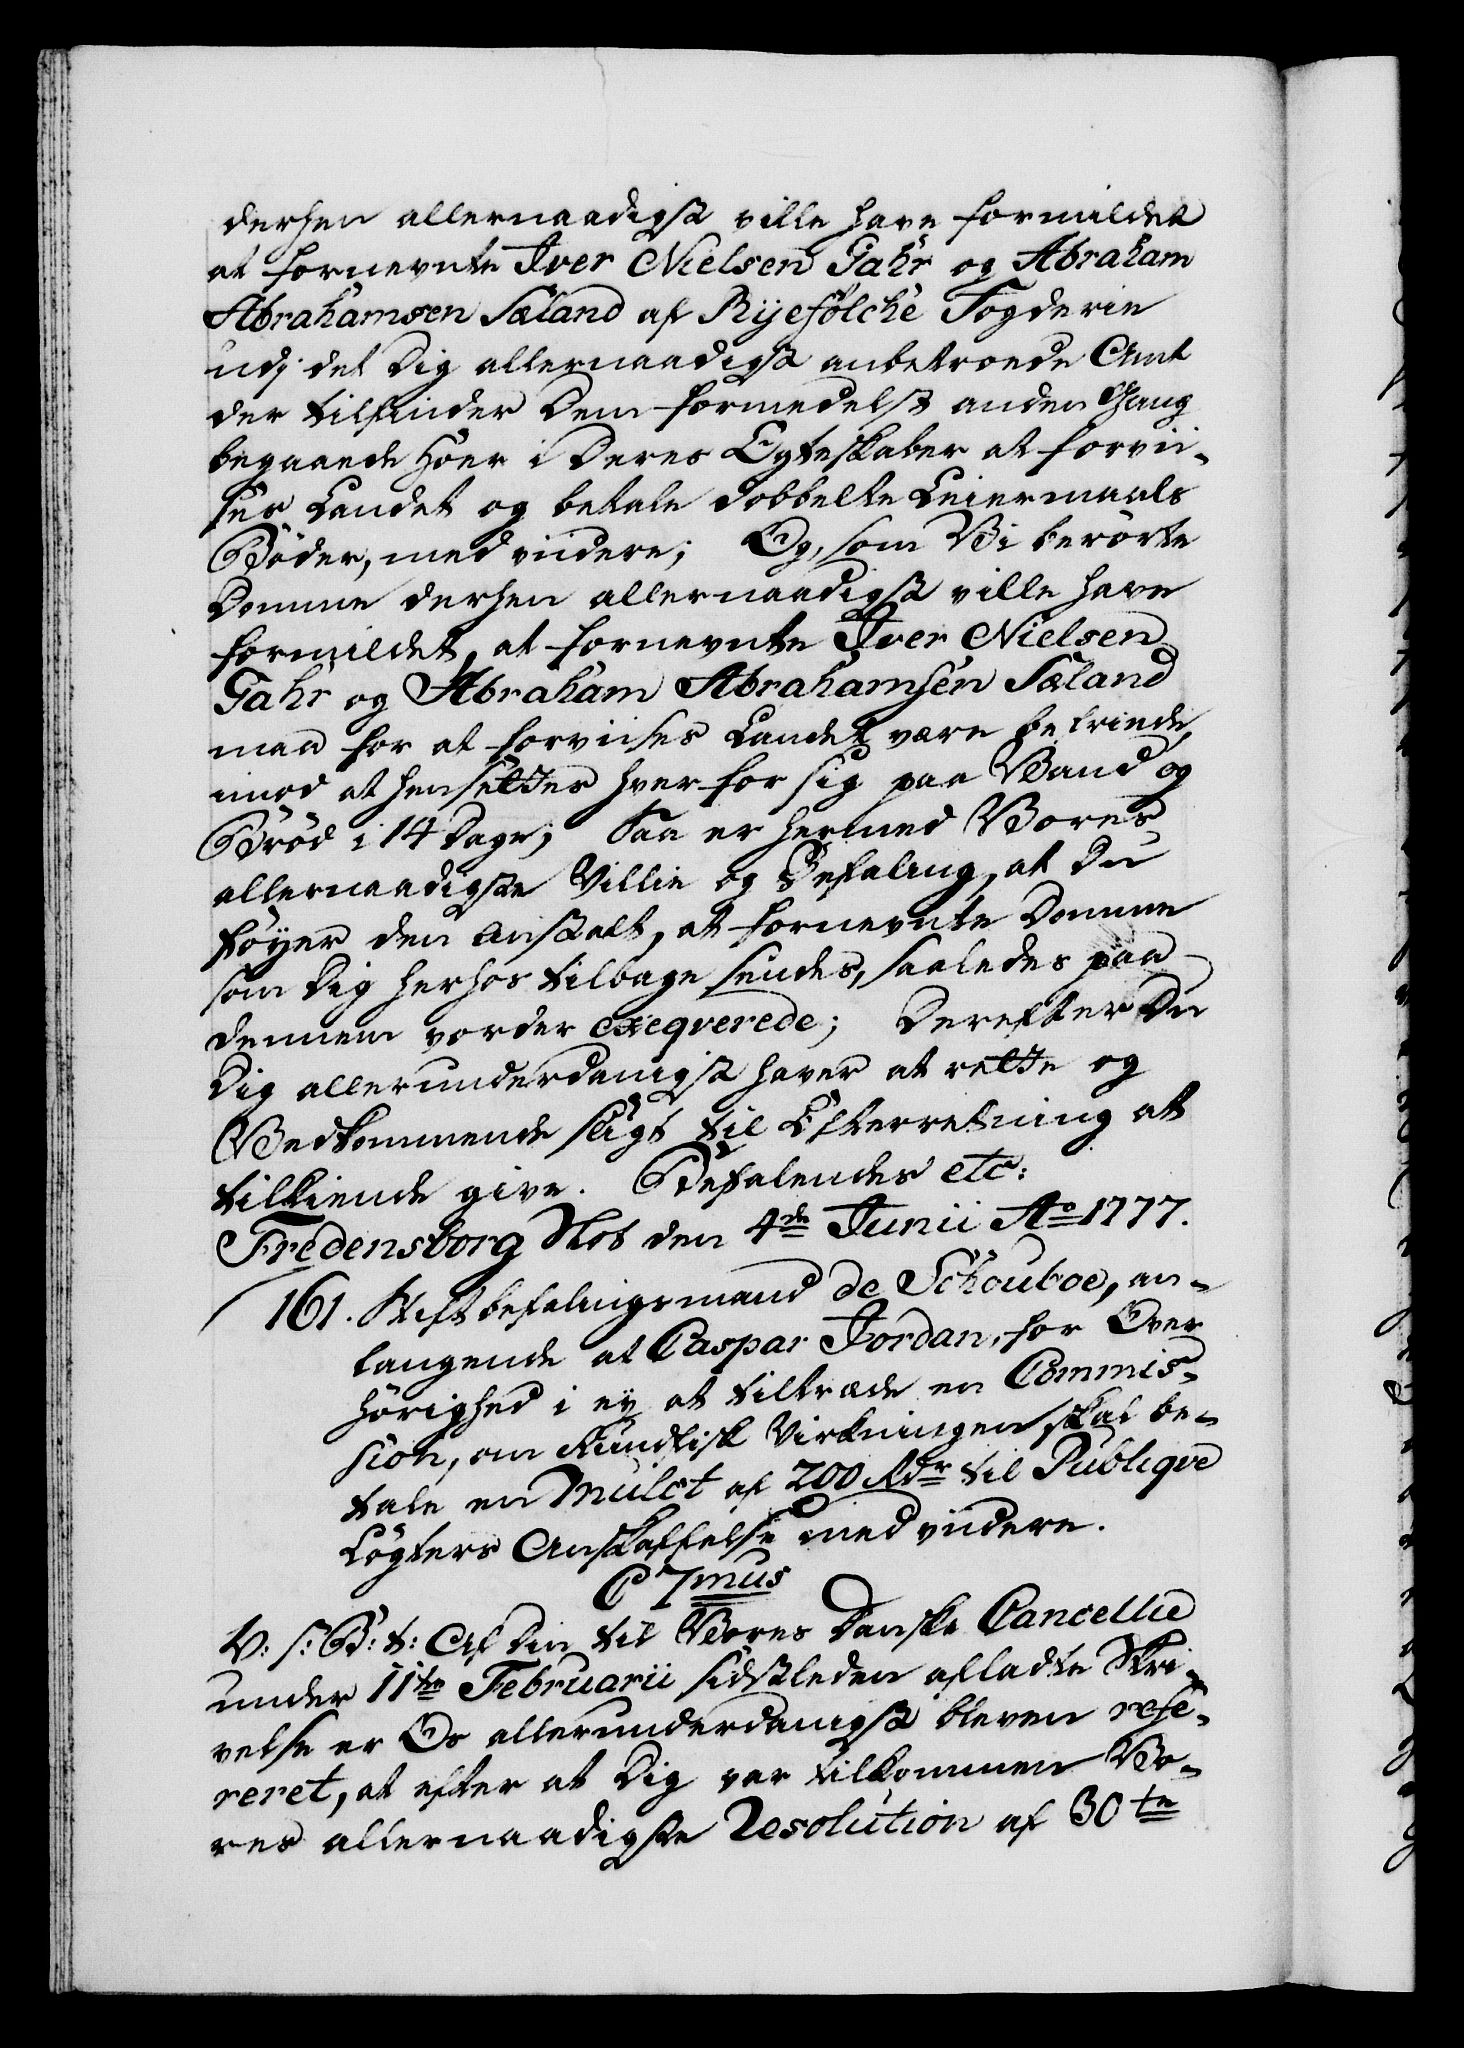 derhen allernaadigst ville have formildet
at fornevnte Iver Nielsen Gahr og Abraham
Abrahamsen Sæland af Ryefölche Fogderie
udj det Dig allernaadigst anbetroede Amt
der tilfinder Dem formedelst anden Gang
begaaede Hoer i Deres Egteskaber at forvii-
ses Landet og betale dobbelte Leiermaals
Bøder, med viidere; Og, som Vi berørte
Domme derhen allernaadigst ville have
formildet, at fornevnte Iver Nielsen
Gahr og Abraham Abrahamsen Sæland
maa for at forviises Landet være befriede,
imod at hensettes hver for sig paa Vand og
Brød i 14 Dage; Saa er hermed Vores
allernaadigste Villie og Befaling, at Du
føyer den Anstalt, at fornevnte Domme
som Dig herhos tilbage sendes, saaledes paa
dennem vorder exeqverede; Derefter Du
Dig allerunderdanigst haver at rette og
Vedkommende sligt til Efterretning at
tilkiende give. Befalendes etc:
Fredensborg Slot den 4de Junii Ao 1777.
161. Stiftbefalingsmand de Schouboe, an-
langende at Caspar Jordan, for Over
hørighed i ey at tiltræde en Commis-
sion, om Kundtisk Virkningen, skal be-
tale en Mulct af 200 Rdr til Publiqve
Løgters Anskaffelse med viidere.
C 7mus
V: S: G: t: Af Din til Vores Danske Cancellie
under 11te Februarii sidstleden afladte Skri-
velse er Os allerunderdanigst bleven refe-
reret, at efter at Dig var tilkommen Vo-
res allernaadigste Resolution af 30te